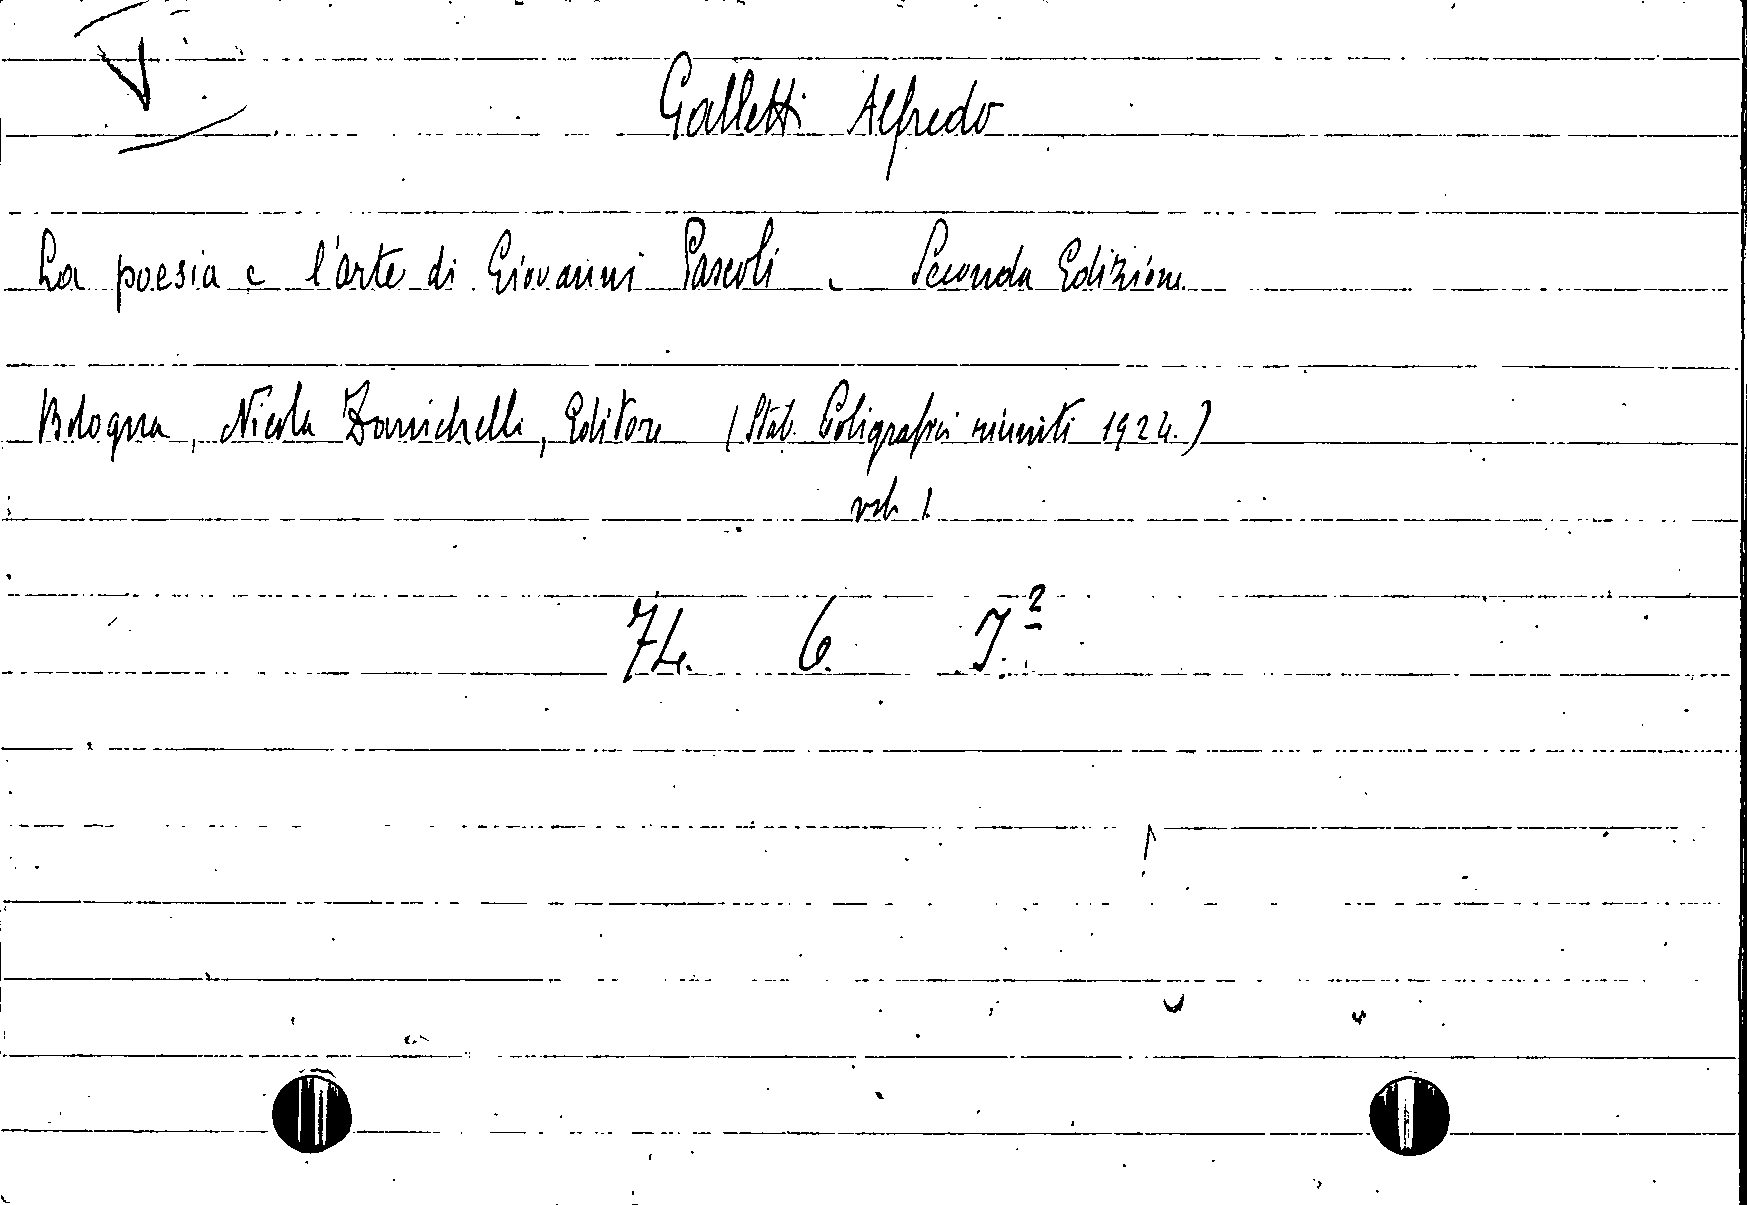 V
Galletti Alfredo
La poesia e l'arte di Giovanni Pascoli. Seconda Edizione
Bologna, Nicola Zanichelli, Editore (Stab. Poligrafici riuniti 1924.)
vol. 1
6. I.²